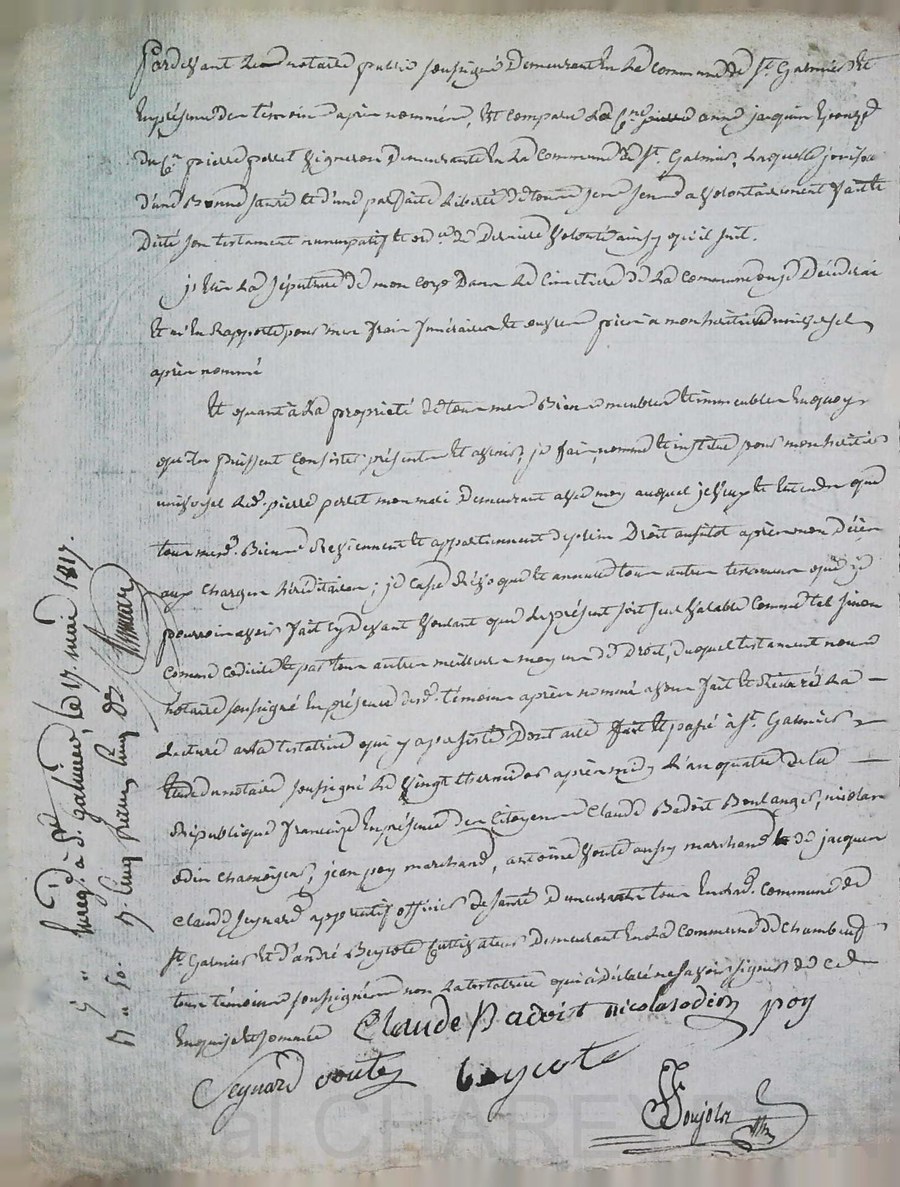 Pardevant le notaire public soussigné demeurant en la commune de St. Galmier et
en présence des témoins après nommés, est comparue la Cne. pierre anne jacquin épouze
du Cn. pierre portet vigneron demeurante en la commune de St. Galmier, laquelle jouissa
d'une bonne santé et d'une parfaite liberté de tous ses sens a volontairement fait et
dicté son testament nuncupatif et ord.re de derniere volonté ainsy qu'il suit.
j'élis la sépulture de mon corps dans le cimetière de la commune ou je décèderai
et m'en rapporte pour mes frais funéraires et œuvres pies à mon heritier universel
après nommé
Et quant à la propriété de tous mes biens meubles et immeubles en quoy
qu'ils puissent consister présents et avenirs, je fais, nomme et institue pour mon heritier
universel led. pierre portet mon mari demeurant avec moy auquel je veux et entends que
tous mesd. biens reviennent et appartiennent de plein droit aussitot après mon décès
aux charges héréditaires; je casse révoque et annulle tous autres testaments que je
pourrois avoir fait cy devant voulant que le présent soit seul valable comme tel sinon
comme codicile et par tous autres meilleurs moyens de droit, duquel testament nous
notaire soussigné en présence desd. témoins après nommés avons fait et réitéré la
lecture à la testatrice qui y a persisté dont acte fait et passé à St. Galmier
étude du notaire soussigné le vingt thermidor après midy l'an quatre de la
République francaise en présence des citoyens Claude Badoit boulanger, nicolas
odin chamoiseur, jean poy marchand, antoine voute aussy marchand de jacques
claude seynard apprentif officier de santé demeurants tous en lad. commune de
St. Galmier et d'andré beycote cultivateur demeurant en la commune de Chambeuf
tous témoins soussignés non la testatrice qui a déclaré ne savoir signer de ce
enquise et sommée Claude Badoit nicolas odin poy
Seynard voute beycote
Soujolz
Enreg.é à St. galmier, le 17. mai 1817.